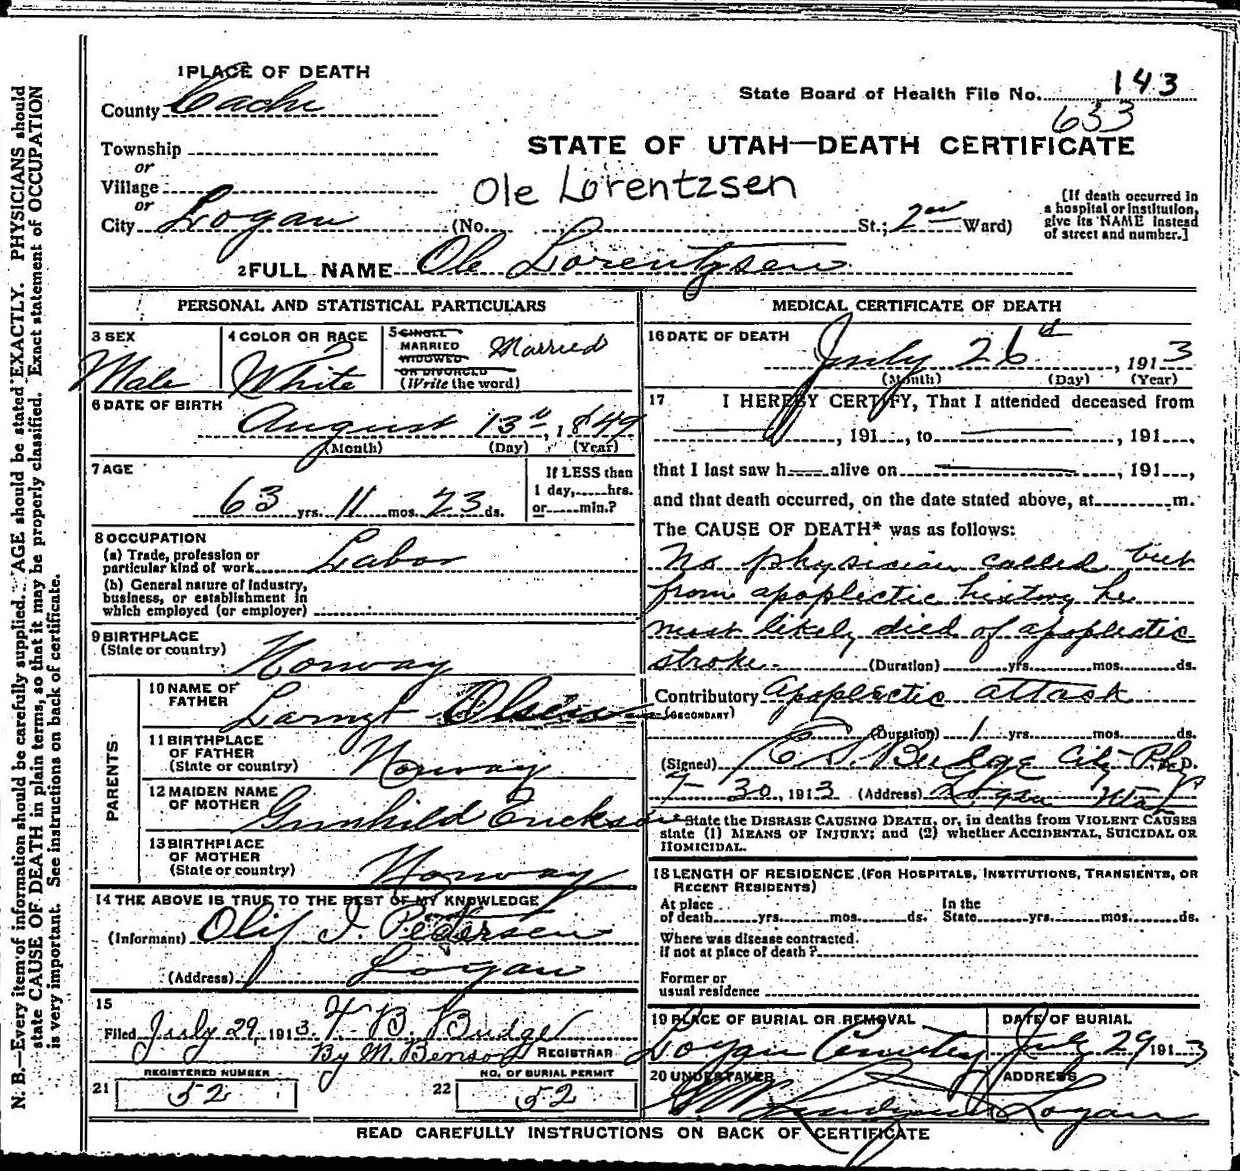 1 PLACE OF DEATH
County Cache
State Board of Health File No. 143
633
Township
or
Village
or
City Logan
STATE OF UTAH—DEATH CERTIFICATE
Ole Lorentzsen
(No. St.; 2nd Ward)
[If death occurred in a hospital or institution, give its NAME instead of street and number.]
2 FULL NAME Ole Lorentzsen
PERSONAL AND STATISTICAL PARTICULARS
3 SEX
Male
4 COLOR OR RACE
White
5 SINGLE
MARRIED
WIDOWED
OR DIVORCED
(Write the word)
Married
6 DATE OF BIRTH
August 13th, 1849
(Month) (Day) (Year)
7 AGE
63 yrs. 11 mos. 23 ds.
If LESS than
1 day, hrs.
or min.?
8 OCCUPATION
(a) Trade, profession or
particular kind of work Labor
(b) General nature of Industry,
business, or establishment in
which employed (or employer)
9 BIRTHPLACE
(State or country) Norway
PARENTS
10 NAME OF
FATHER Olsen
11 BIRTHPLACE
OF FATHER
(State or country) Norway
12 MAIDEN NAME
OF MOTHER Gunhild Erickson
13 BIRTHPLACE
OF MOTHER
(State or country) Norway
14 THE ABOVE IS TRUE TO THE BEST OF MY KNOWLEDGE
(Informant) Olif J. Petersen
(Address) Logan
15
Filed July 29, 1913. F B. Budge
By M. Benson REGISTRAR
21 REGISTERED NUMBER
52
22 NO. OF BURIAL PERMIT
52
MEDICAL CERTIFICATE OF DEATH
16 DATE OF DEATH
July 26th, 1913
(Month) (Day) (Year)
17 I HEREBY CERTIFY, That I attended deceased from
, 191 , to , 191 ,
that I last saw h alive on , 191 ,
and that death occurred, on the date stated above, at m.
The CAUSE OF DEATH* was as follows:
No physician called but
from apoplectic history he
most likely died of apoplectic
stroke. (Duration) yrs. mos. ds.
Contributory Apoplectic attack
(SECONDARY)
(Duration) 1 yrs. mos. ds.
(Signed) Budge City Phys.
M.D.
7-30, 1913 (Address) Logan Utah
State the DISEASE CAUSING DEATH, or, in deaths from VIOLENT CAUSES
state (1) MEANS OF INJURY; and (2) whether ACCIDENTAL, SUICIDAL OR
HOMICIDAL.
18 LENGTH OF RESIDENCE (FOR HOSPITALS, INSTITUTIONS, TRANSIENTS, OR
RECENT RESIDENTS)
At place
of death yrs. mos. ds.
In the
State yrs. mos. ds.
Where was disease contracted.
if not at place of death?
Former or
usual residence
19 PLACE OF BURIAL OR REMOVAL
Logan Cemetery
DATE OF BURIAL
July 29 1913
20 UNDERTAKER
ADDRESS
Logan
READ CAREFULLY INSTRUCTIONS ON BACK OF CERTIFICATE
N. B.—Every item of information should be carefully supplied. AGE should be stated EXACTLY. PHYSICIANS should
state CAUSE OF DEATH in plain terms, so that it may be properly classified. Exact statement of OCCUPATION
is very important. See instructions on back of certificate.